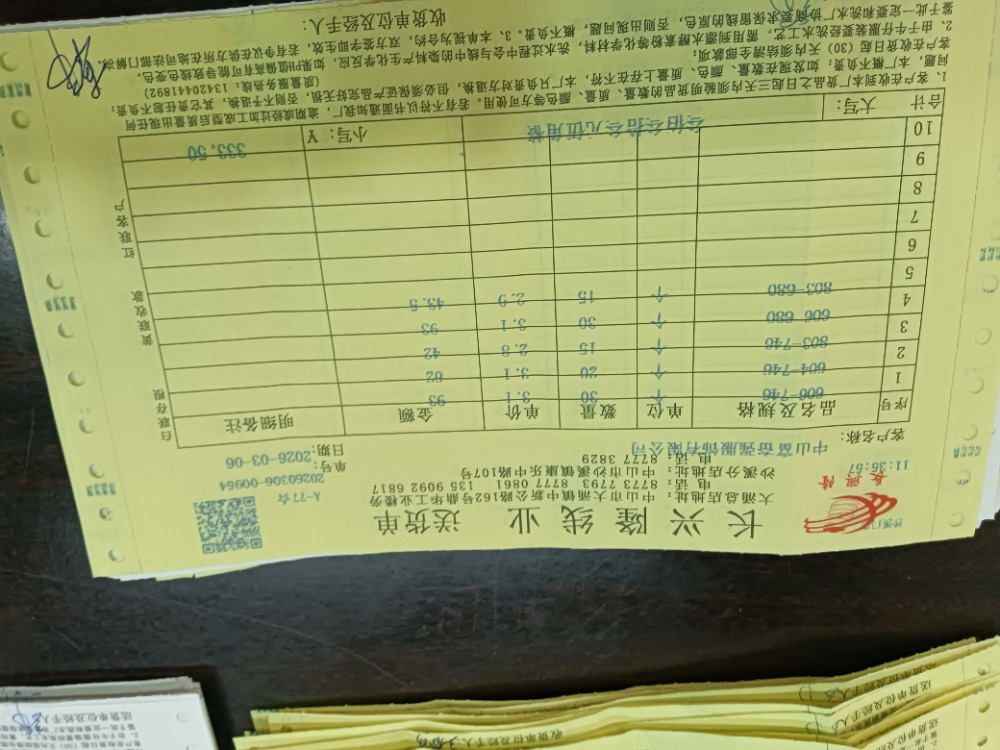 长兴隆线业 送货单
大涌总店地址:中山市大涌镇中新公路162号鼎华工业楼旁
电 话:8773 7793 8777 0861 135 9092 6817
沙溪分店地址:中山市沙溪镇康乐中路107号
电 话:8777 3829
长興隆
沙溪门
11:35:57
A-77合
单号:20260306-00954
日期:2026-03-06
客户名称:中山富奋强服饰有限公司
序号 品名及规格 单位 数量 单价 金额 明细备注
1 606-746 个 30 3.1 93
2 604-746 个 20 3.1 62
3 803-746 个 15 2.8 42
4 606-680 个 30 3.1 93
5 803-680 个 15 2.9 43.5
6
7
8
9
10
合计 大写:叁佰叁拾叁元伍角整 小写:¥ 333.50
白联存根
黄联收款
红联客户
1、客户在收到本厂货品之日起三天内须验明货品的数量、质量、颜色等方可使用。若有不符以书面通知我厂,逾期或经过加工成型后质量出现任何
问题,本厂概不负责;如发现在数量、颜色、质量上存在不符,本厂只负责对方退换,但必须保证产品完好无损,否则不予退换,其它责任起不负责;
客户在收货日起(30)天内须结清全部款项; (质量服务热线:13420041892)
2、由于牛仔服装要经洗水工艺,需用到漂水酵素粉等化学材料,洗水过程中会与线中的染料产生化学反应,如果PH值偏高有可能导致线色变色,
鉴于此一定要和洗水厂协商要求保留线的原色,否则出现问题,概不负责。3、本单视为合约,双方签字即生效,若有争议在供方所在地司法部门解决。
收货单位及经手人:
送货单位及经手人
送货单位及经手人
送货单位及经手人